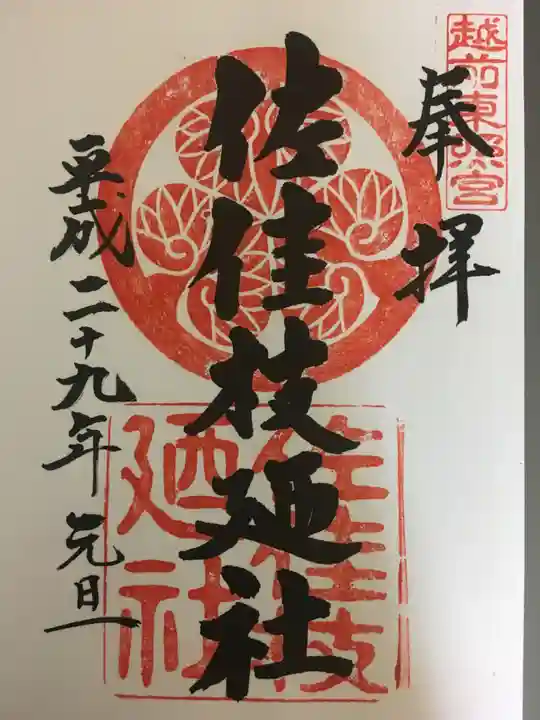 越前東照宮
奉拝
佐佳枝廼社
佐佳枝
廼社
平成二十九年元旦